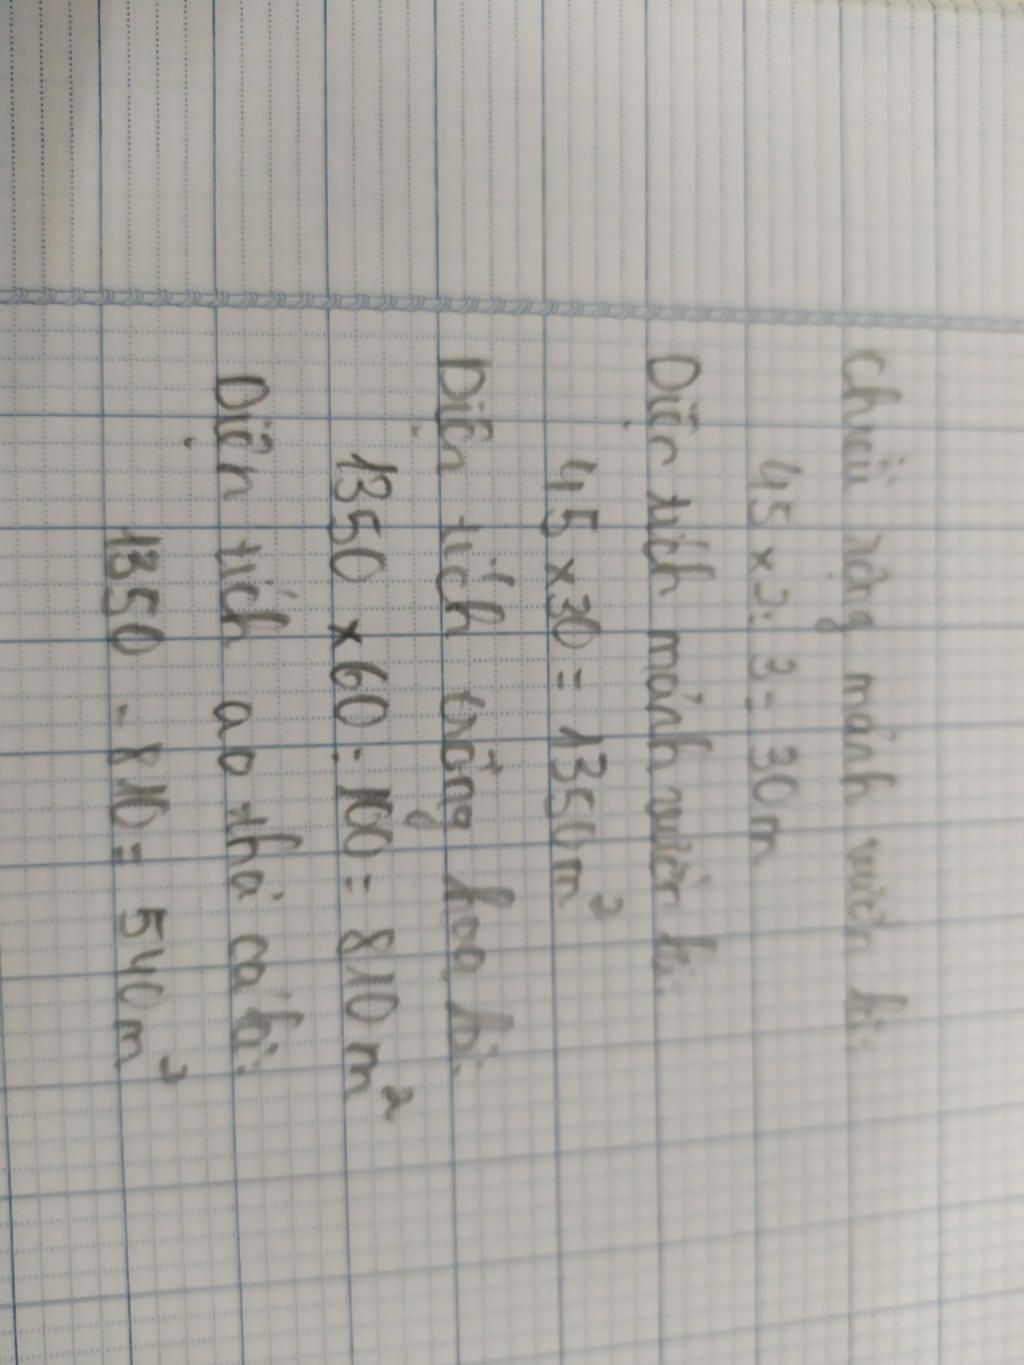 Chiều rộng mảnh vườn là:
45 x 2 : 3 = 30 m
Diện tích mảnh vườn là:
45 x 30 = 1350 m²
Diện tích trồng hoa là:
1350 x 60 : 100 = 810 m²
Diện tích ao thả cá là:
1350 - 810 = 540 m²